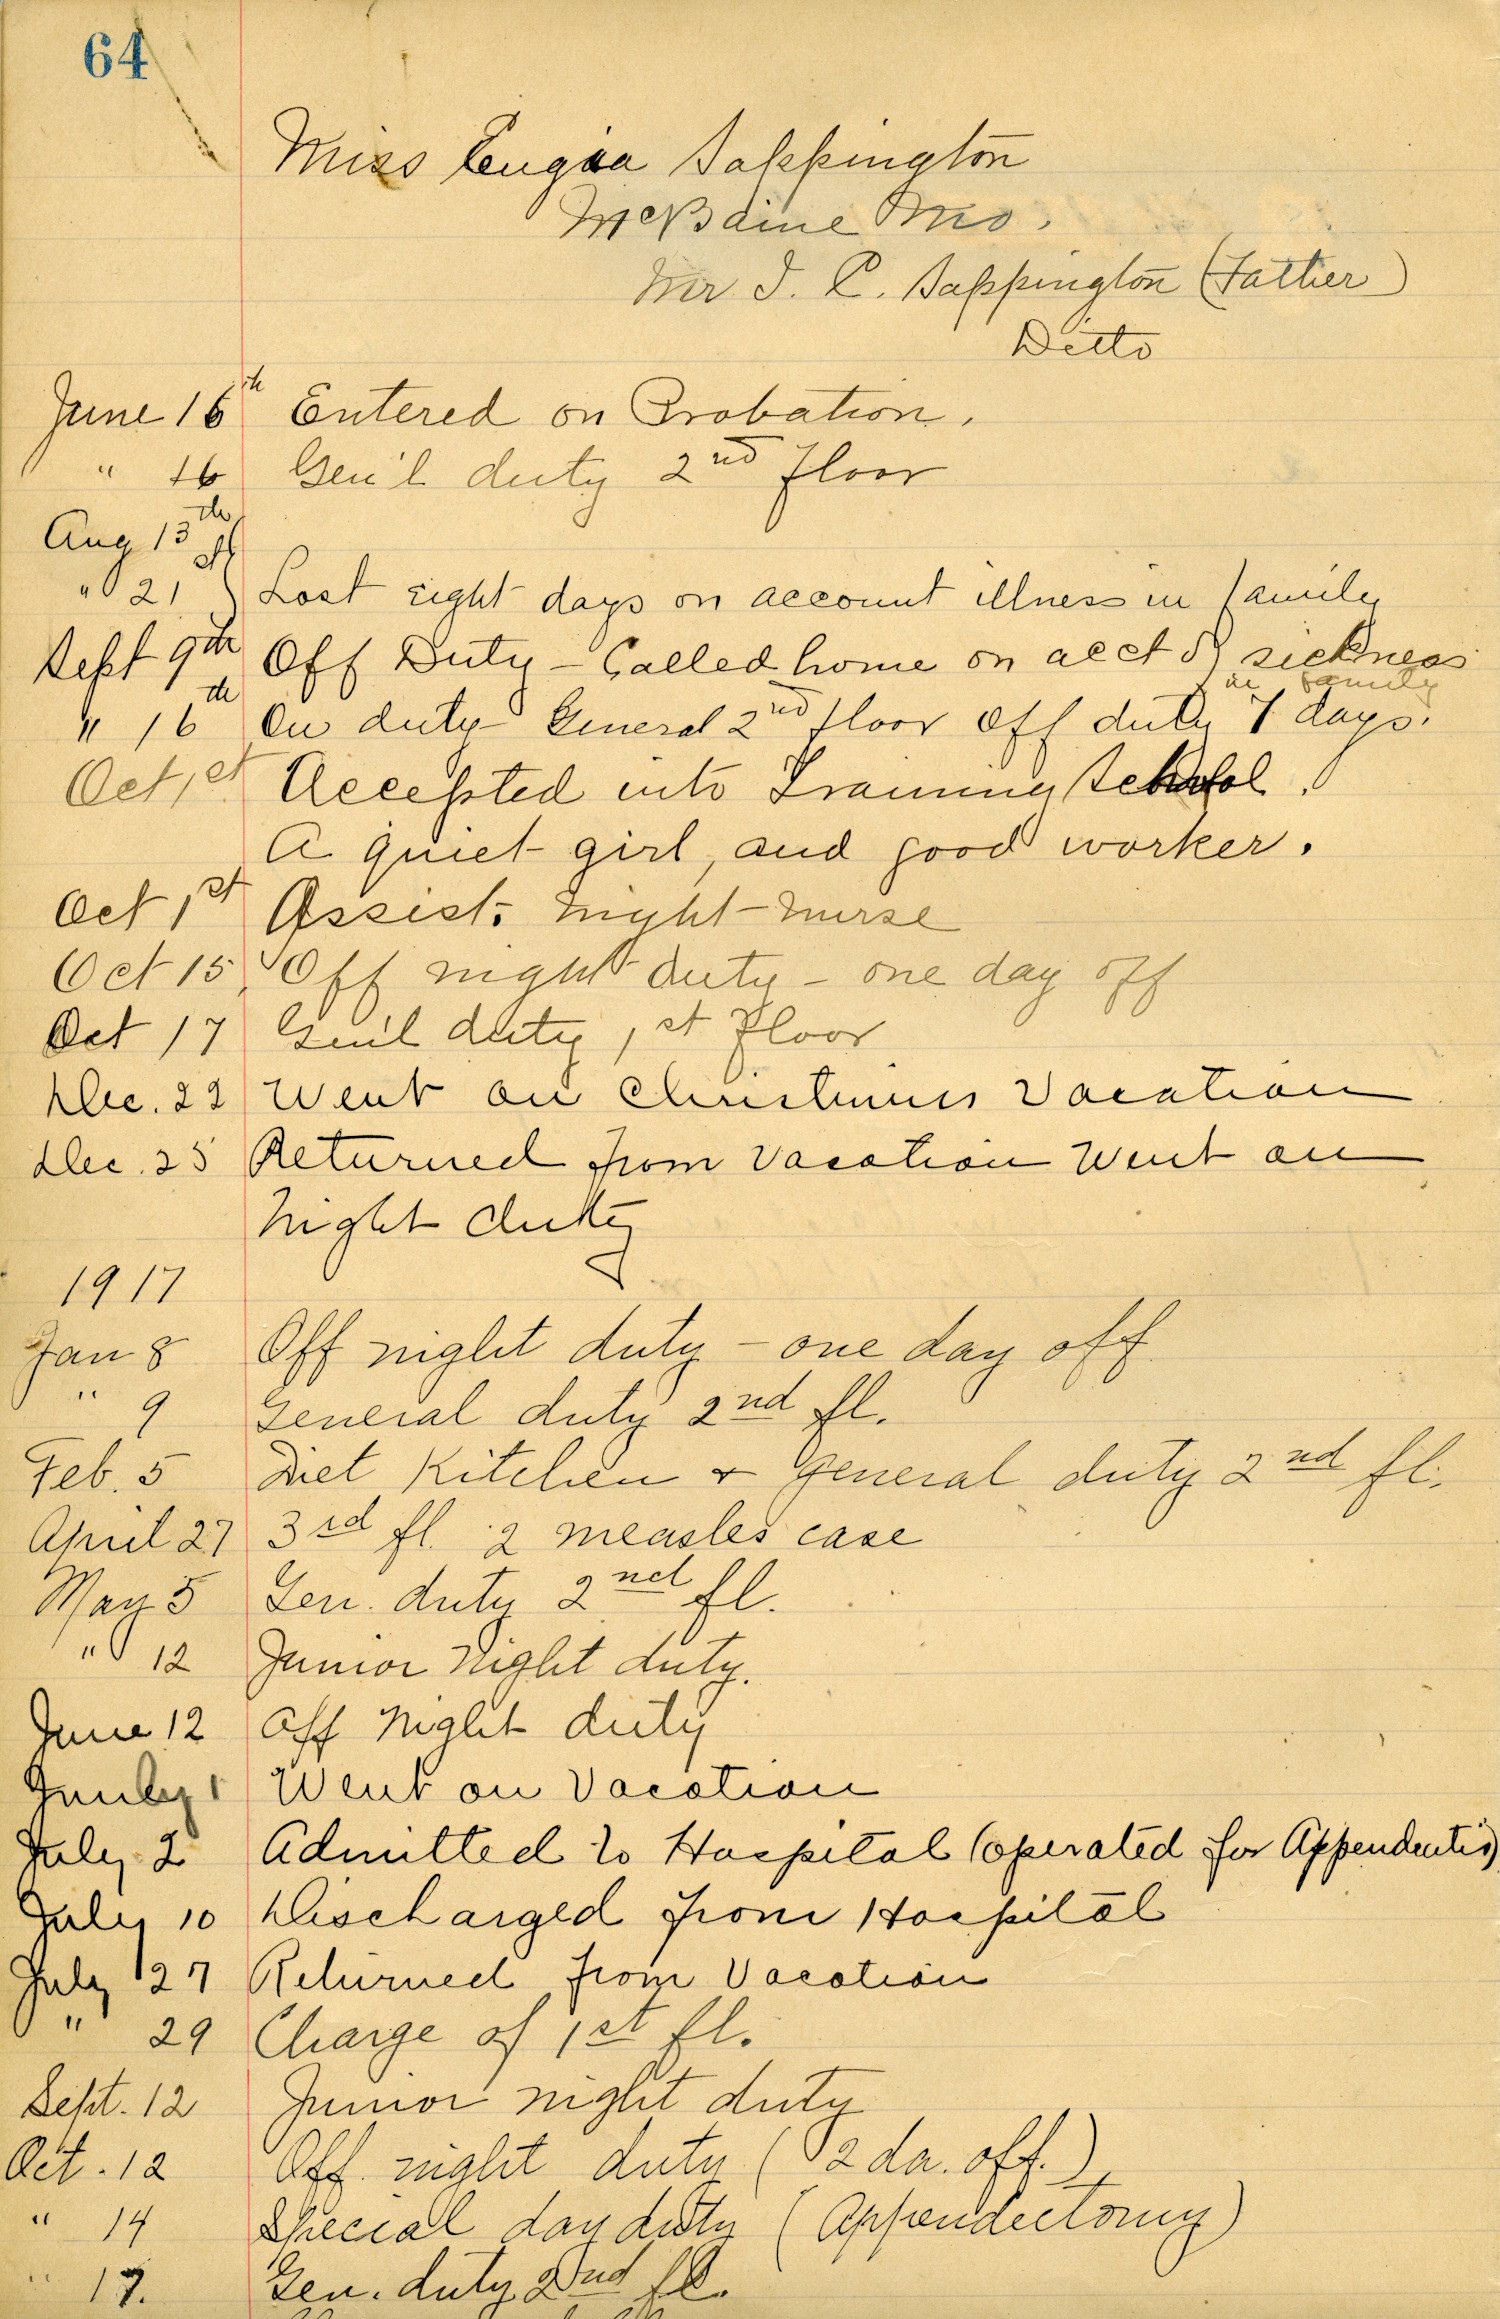 64
Miss Eugia Sappington
McBaine Mo.
Mr J. C. Sappington (Father)
Ditto
June 16th Entered on Probation.
" 16 Gen'l duty 2nd floor
Aug 13th
" 21st Lost eight days on account illness in family
Sept 9th Off Duty - Called home on acct of sickness
in family
" 16th On duty General 2nd floor Off duty 7 days.
Oct 1st Accepted into Training School.
A quiet girl, and good worker.
Oct 1st Assist. night-nurse
Oct 15, Off night duty - one day off
Oct 17 Gen'l duty 1st Floor
Dec. 22 Went on Christmas Vacation
Dec. 25 Returned from Vacation Went on
Night duty
1917
Jan 8 Off night duty - one day off
" 9 General duty 2nd fl.
Feb. 5 Diet Kitchen & general duty 2nd fl.
April 27 3rd fl. 2 measles case
May 5 Gen. duty 2nd fl.
" 12 Junior night duty.
June 12 Off Night duty
1 Went on Vacation
July 2 Admitted to Hospital (operated for Appendectis)
July 10 Discharged from Hospital
July 27 Returned from Vacation
" 29 Charge of 1st fl.
Sept. 12 Junior night duty
Oct. 12 Off night duty (2 da. off.)
" 14 Special day duty (Appendectomy)
" 17. Gen. duty 2nd fl.